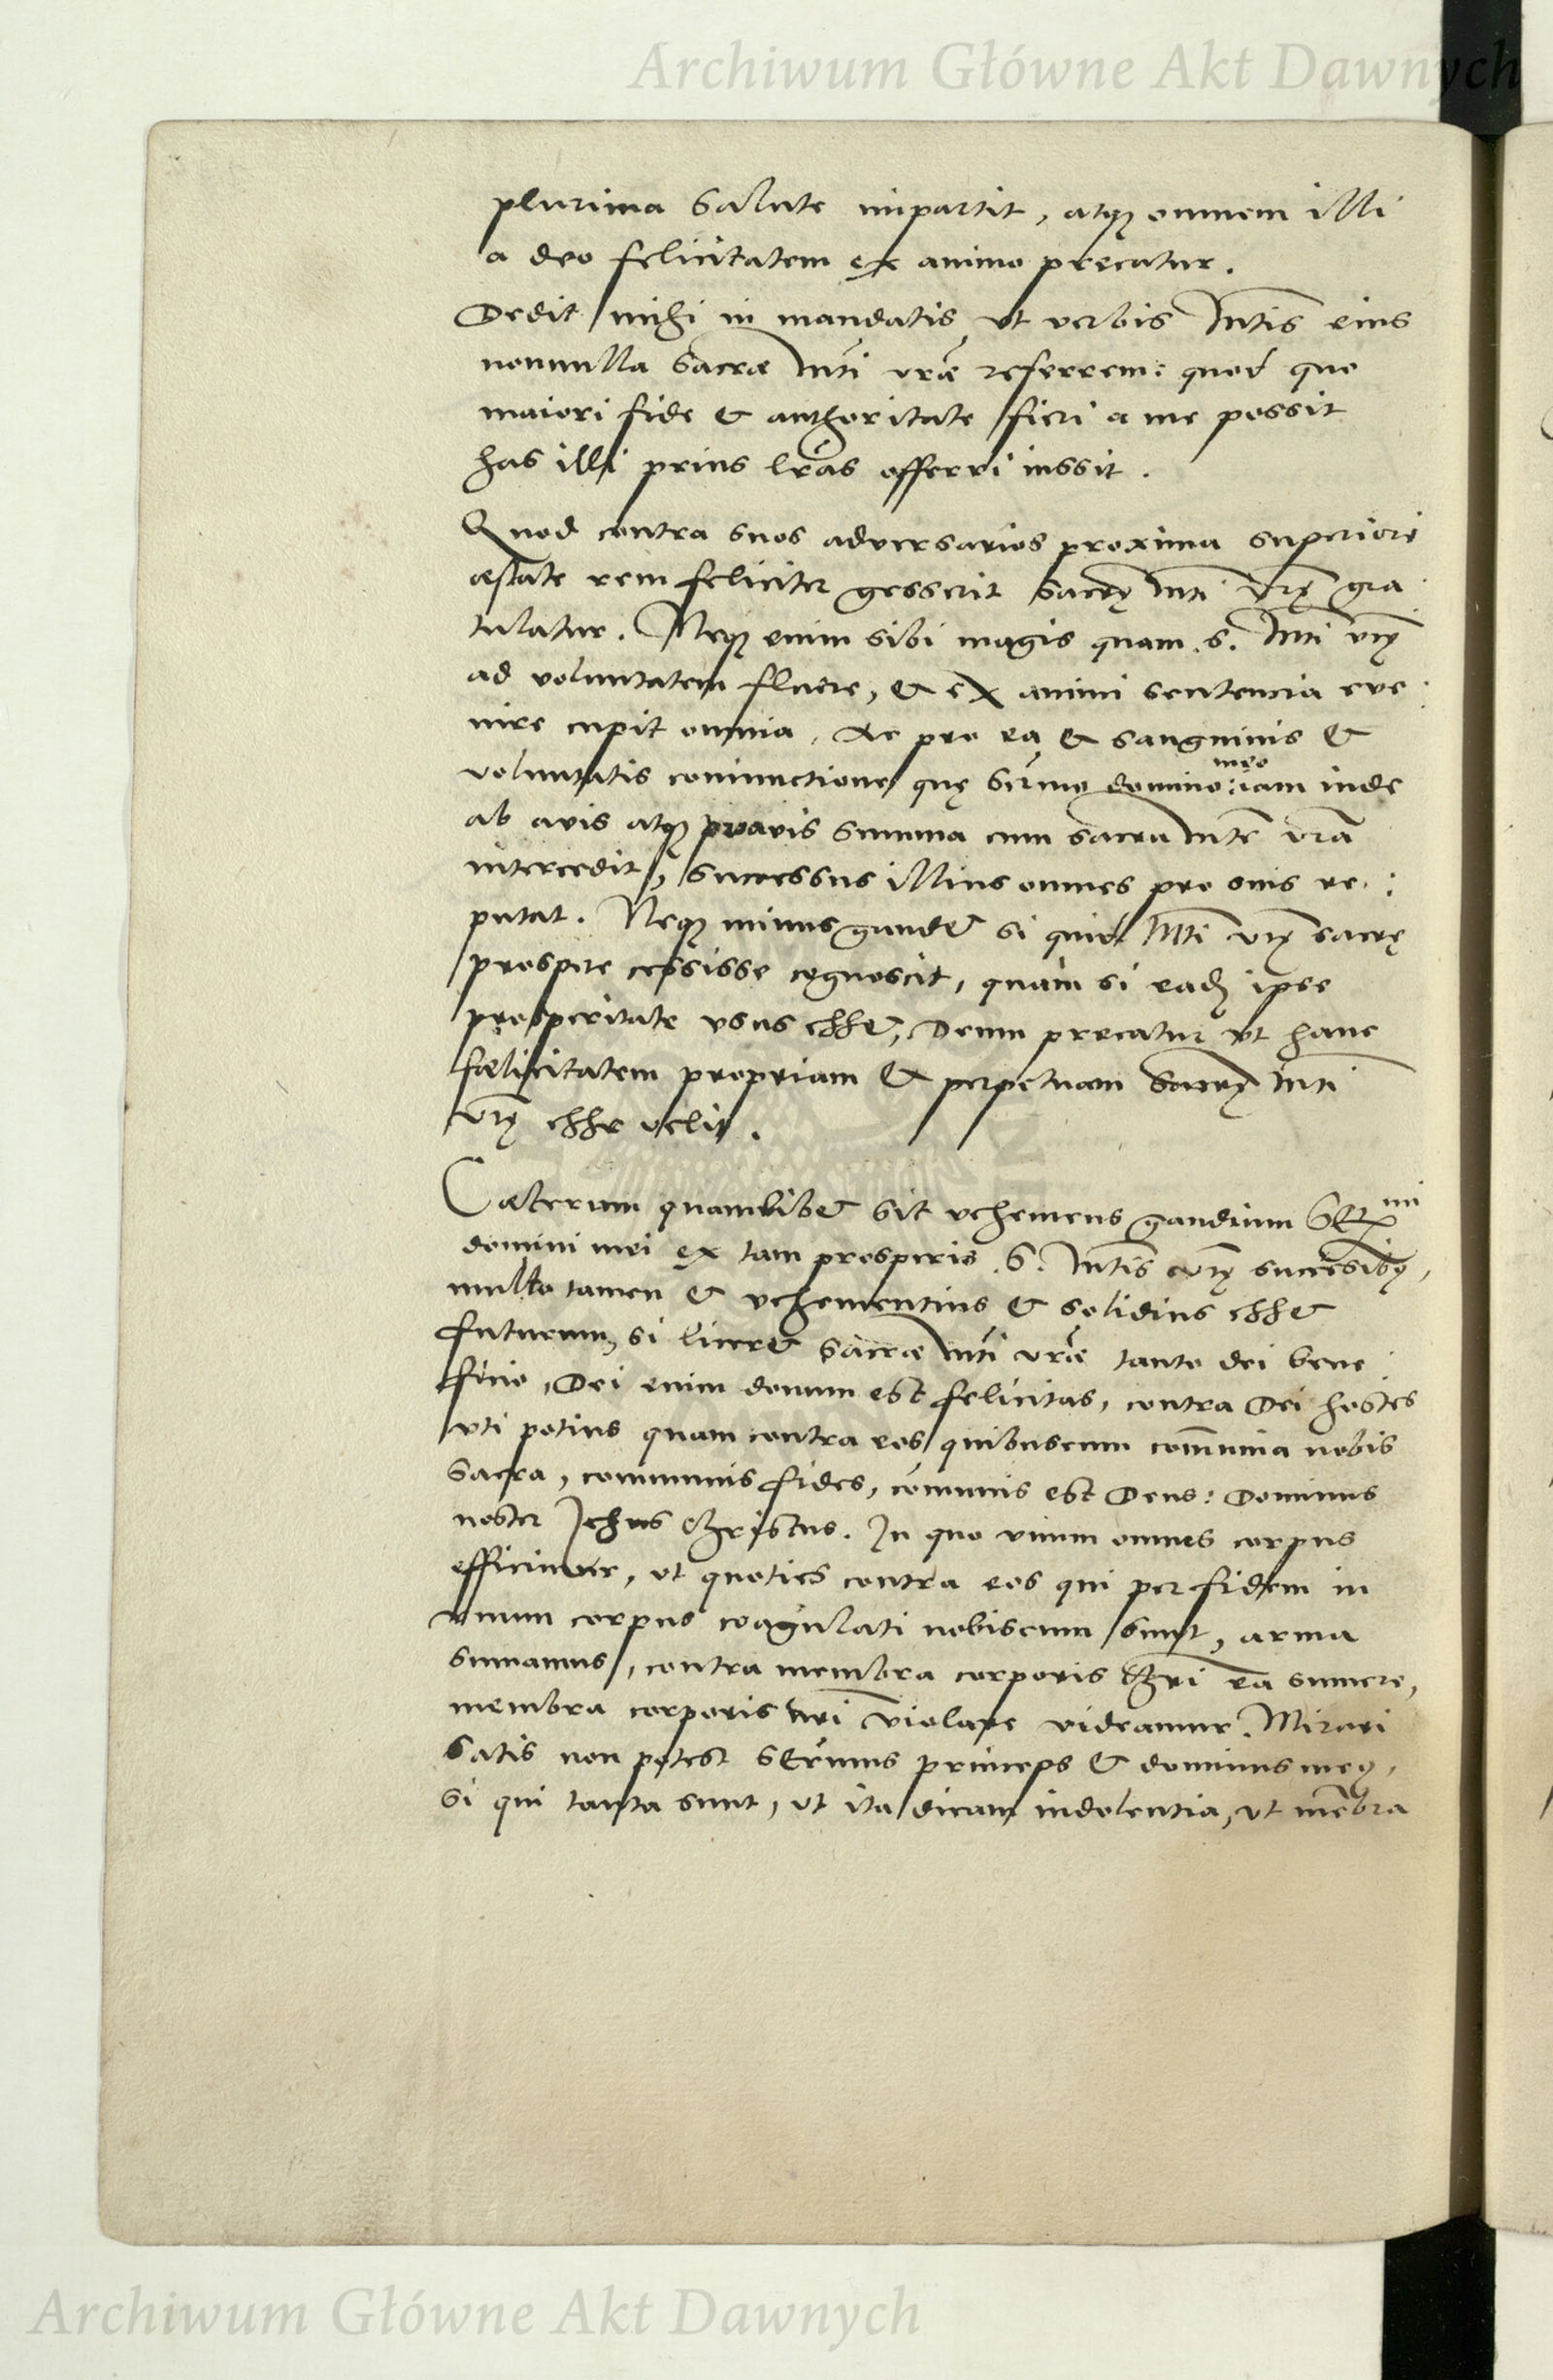 Archiwum Główne Akt Dawnych
plurima salute impartit, atqꝫ omnem illi
a deo felicitatem ex animo precatur.
Dedit mihi in mandatis ut verbis Mtis eius
nonnulla sacræ Mti vræ referrem: quod quo
maiori fide & authoritate fieri a me possit
has illi prius lras offerri iussit.
Quod contra suos adversarios proxima superiori
æstate rem feliciter gesserit sacrę Mti vrę gra
tulatur. Neqꝫ enim sibi magis quam S. Mti vrę
ad voluntatem fluere, & ex animi sententia eve
nire cupit omnia. Ac pro ea & sanguinis &
meo
voluntatis coniunctione quę Sermo domino iam inde
ab avis atqꝫ proavis summa cum sacra Mte vra
intercedit, successus illius omnes pro suis re:
putat. Neqꝫ minus gaudet si quid Mti vrę sacrę
prospere cessisse cognoscit, quam si eadꝫ ipse
prosperitate usus esset, Deum precatur ut hanc
fœlicitatem propriam & perpetuam sacrę Mti
vrę esse velit.
Cæterum quamlibet sit vehemens gaudium Ser mi
domini mei ex tam prosperis S. Mtis vrę successibꝫ,
multo tamen & vehementius & solidius esset
futurum, si liceret sacræ Mti vræ tanto dei bene
ficio, Dei enim donum est felicitas, contra Dei hostes
uti potius quam contra eos quibuscum comunia nobis
sacra, communis fides, comunis est Deus: Dominus
noster Jesus Christus. In quo unum omnes corpus
efficimur, ut quoties contra eos qui per fidem in
unum corpus coagulati nobiscum sunt, arma
sumamus, contra membra corporis Chri ea sumere,
membra corporis nri violare videamur. Mirari
satis non potest Sermus princeps & dominus meꝰ,
si qui tanta sunt, ut ita dicam indolentia, ut mebra
Archiwum Główne Akt Dawnych